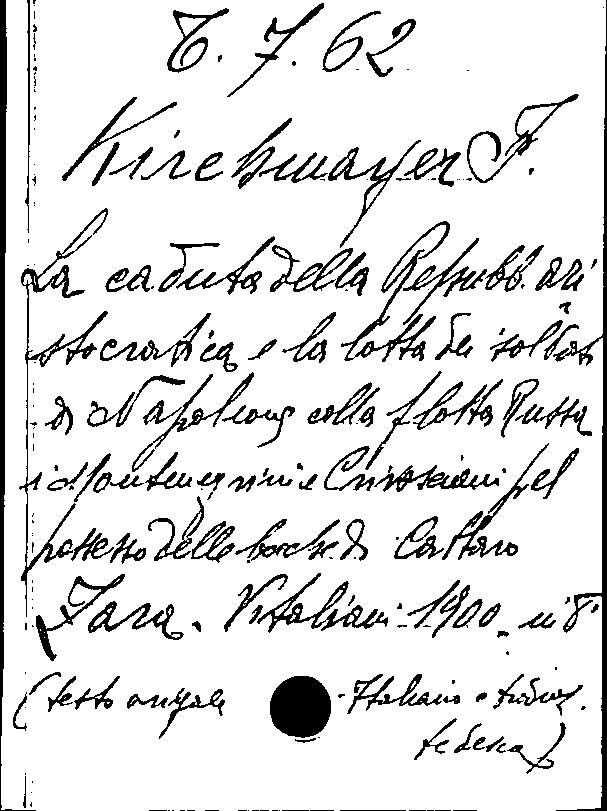 T. 7. 62
Kirchmayer F.
La caduta della Repubb. ari
stocratica e la lotta dei soldati
di Napoleone colla flotta Russa
i Montenegrini e Crivosciani pel
possesso delle bocche di Cattaro
Zara. Vitaliani 1900. in 8°
(testo origale - Italiano e traduz.
tedesca)